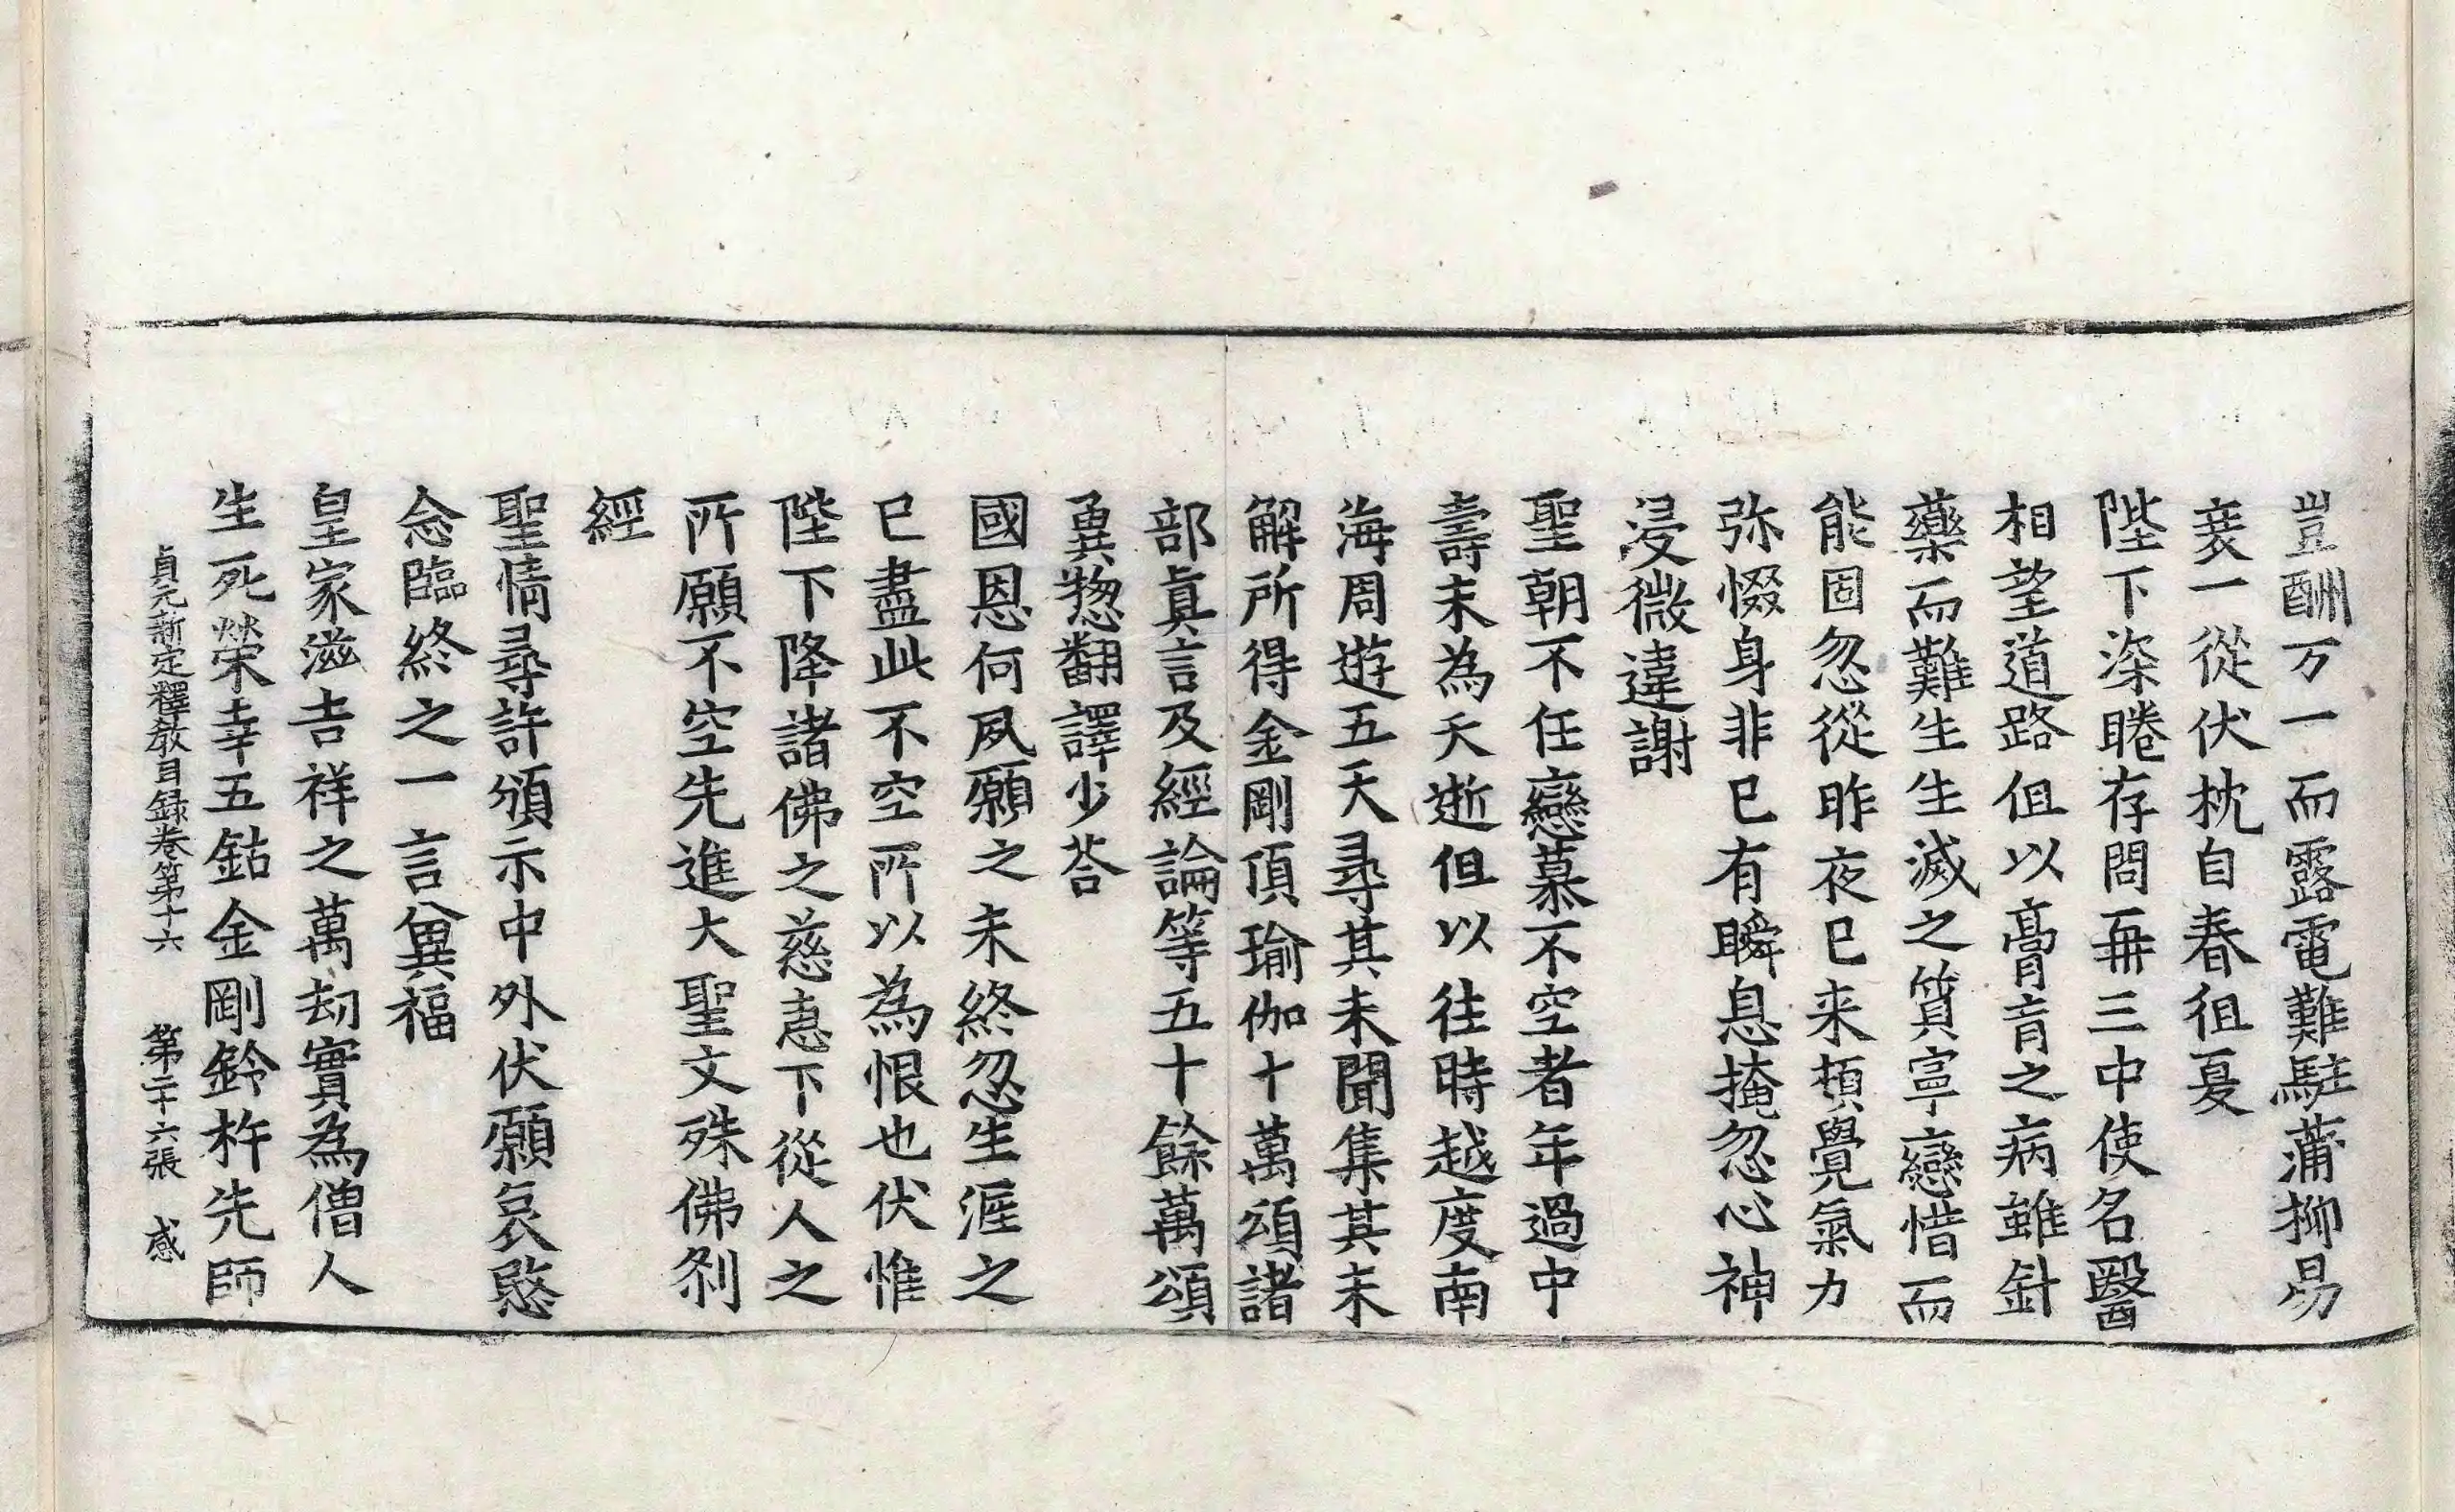 豈酬万一而露電難駐蒲柳易
衰一從伏枕自春徂夏
陛下深睠存問再三中使名醫
相望道路但以膏肓之病雖針
藥而難生生滅之質寧戀惜而
能固忽從昨夜已来頓覺氣力
弥惙身非已有瞬息掩忽心神
浸微違謝
聖朝不任戀慕不空者年過中
壽未為夭逝但以往時越度南
海周遊五天尋其未聞集其未
解所得金剛頂瑜伽十萬頌諸
部真言及經論等五十餘萬頌
冀惣翻譯少荅
國恩何夙願之未終忽生涯之
已盡此不空所以為恨也伏惟
陛下降諸佛之慈恵下從人之
所願不空先進大聖文殊佛剎
經
聖情尋許頒示中外伏願哀愍
念臨終之一言冀福
皇家滋吉祥之萬劫實為僧人
生死榮幸五鈷金剛鈴杵先師
貞元新定釋教目録卷第十六 第二十六張 感